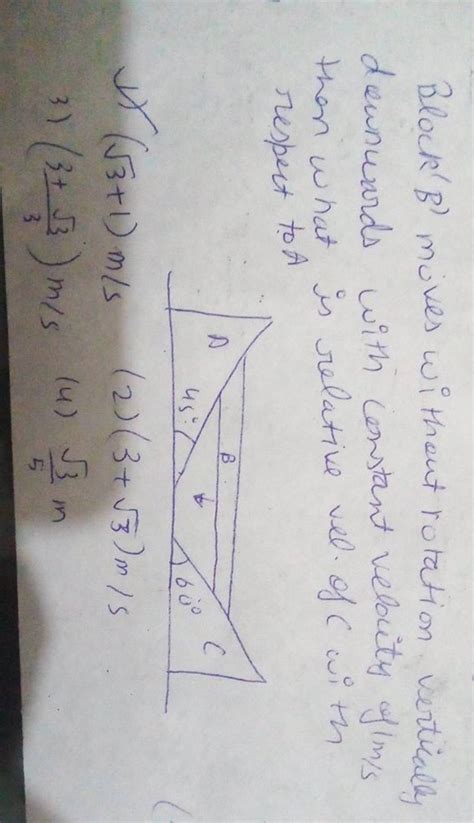 Block 'B' moves without rotation vertically
downwards with constant velocity of 1m/s
then what is relative vel. of C with
respect to A
A
B
C
45°
60°
1) (√3+1) m/s (2) (3+√3) m/s
3) (3+√3/3) m/s (4) √3/5 m